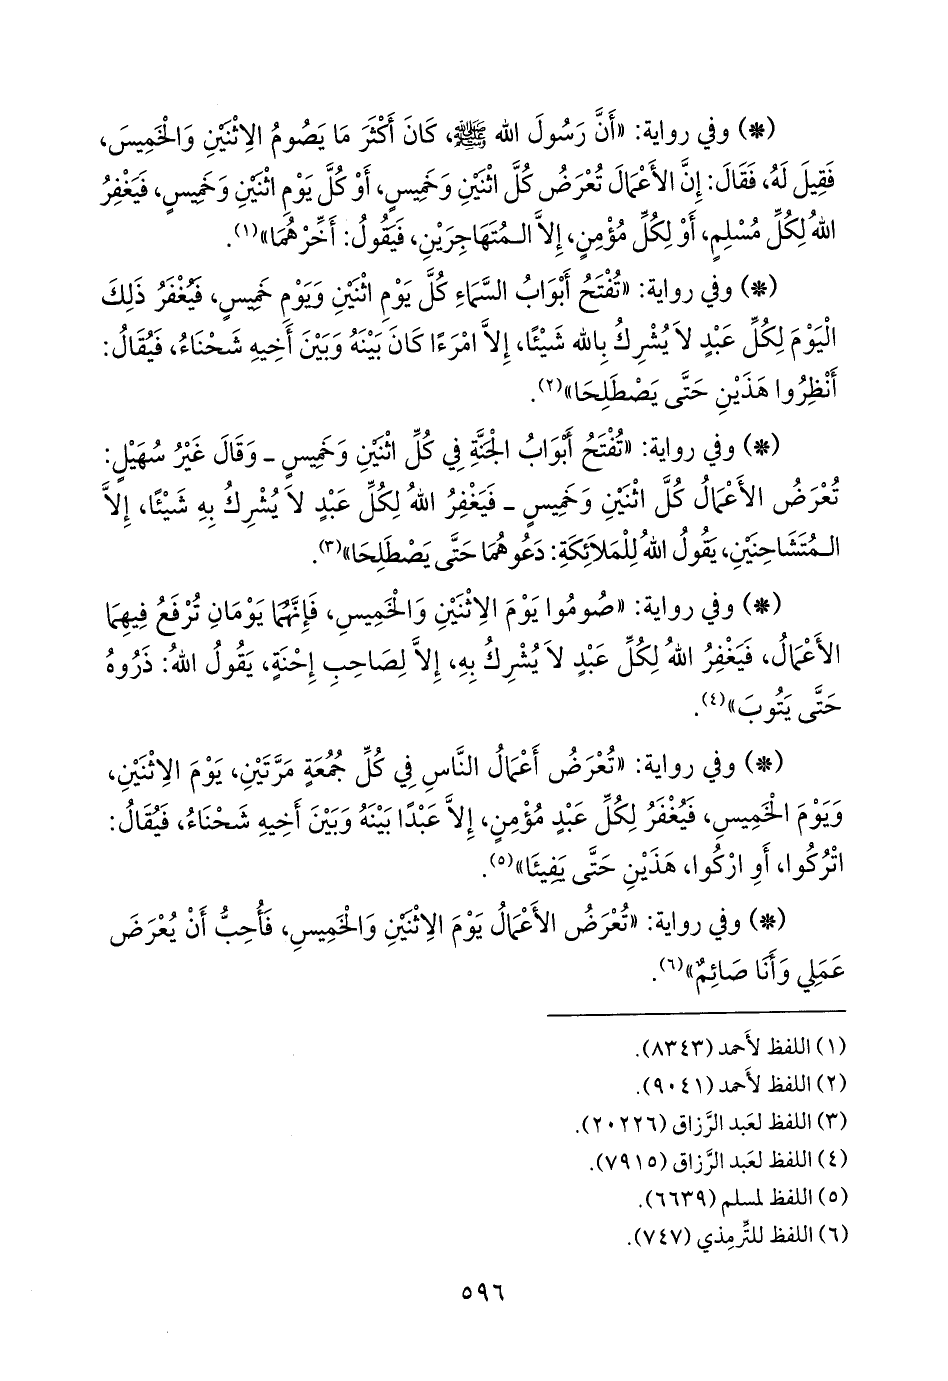 (*) وفي رواية: «أَنَّ رَسُولَ الله ﷺ، كَانَ أَكْثَرَ مَا يَصُومُ الِاثْنَيْنِ وَالْخَمِيسَ،
فَقِيلَ لَهُ، فَقَالَ: إِنَّ الأَعْمَالَ تُعْرَضُ كُلَّ اثْنَيْنِ وَخَمِيسٍ، أَوْ كُلَّ يَوْمِ اثْنَيْنِ وَخَمِيسٍ، فَيَغْفِرُ
اللهُ لِكُلِّ مُسْلِمٍ، أَوْ لِكُلِّ مُؤْمِنٍ، إِلاَّ الـمُتَهَاجِرَيْنِ، فَيَقُولُ: أَخِّرْهُمَا»(١).
(*) وفي رواية: «تُفْتَحُ أَبْوَابُ السَّمَاءِ كُلَّ يَوْمِ اثْنَيْنِ وَيَوْمِ خَمِيسٍ، فَيُغْفَرُ ذَلِكَ
الْيَوْمَ لِكُلِّ عَبْدٍ لاَ يُشْرِكُ بِالله شَيْئًا، إِلاَّ امْرَءًا كَانَ بَيْنَهُ وَبَيْنَ أَخِيهِ شَحْنَاءُ، فَيُقَالُ:
أَنْظِرُوا هَذَيْنِ حَتَّى يَصْطَلِحَا»(٢).
(*) وفي رواية: «تُفْتَحُ أَبْوَابُ الْجَنَّةِ فِي كُلِّ اثْنَيْنِ وَخَمِيسٍ - وَقَالَ غَيْرُ سُهَيْلٍ:
تُعْرَضُ الأَعْمَالُ كُلَّ اثْنَيْنِ وَخَمِيسٍ - فَيَغْفِرُ اللهُ لِكُلِّ عَبْدٍ لاَ يُشْرِكُ بِهِ شَيْئًا، إِلاَّ
الـمُتَشَاحِنَيْنِ، يَقُولُ اللهُ لِلْمَلاَئِكَةِ: دَعُوهُمَا حَتَّى يَصْطَلِحَا»(٣).
(*) وفي رواية: «صُومُوا يَوْمَ الِاثْنَيْنِ وَالْخَمِيسِ، فَإِنَّهُمَا يَوْمَانِ تُرْفَعُ فِيهِمَا
الأَعْمَالُ، فَيَغْفِرُ اللهُ لِكُلِّ عَبْدٍ لاَ يُشْرِكُ بِهِ، إِلاَّ لِصَاحِبِ إِحْنَةٍ، يَقُولُ اللهُ: ذَرُوهُ
حَتَّى يَتُوبَ»(٤).
(*) وفي رواية: «تُعْرَضُ أَعْمَالُ النَّاسِ فِي كُلِّ جُمُعَةٍ مَرَّتَيْنِ، يَوْمَ الِاثْنَيْنِ،
وَيَوْمَ الْخَمِيسِ، فَيُغْفَرُ لِكُلِّ عَبْدٍ مُؤْمِنٍ، إِلاَّ عَبْدًا بَيْنَهُ وَبَيْنَ أَخِيهِ شَحْنَاءُ، فَيُقَالُ:
اتْرُكُوا، أَوِ ارْكُوا، هَذَيْنِ حَتَّى يَفِيئَا»(٥).
(*) وفي رواية: «تُعْرَضُ الأَعْمَالُ يَوْمَ الِاثْنَيْنِ وَالْخَمِيسِ، فَأُحِبُّ أَنْ يُعْرَضَ
عَمَلِي وَأَنَا صَائِمٌ»(٦).
(١) اللفظ لأَحمد (٨٣٤٣).
(٢) اللفظ لأَحمد (٩٠٤١).
(٣) اللفظ لعَبد الرَّزاق (٢٠٢٢٦).
(٤) اللفظ لعَبد الرَّزاق (٧٩١٥).
(٥) اللفظ لمسلم (٦٦٣٩).
(٦) اللفظ للتِّرمِذي (٧٤٧).
٥٩٦